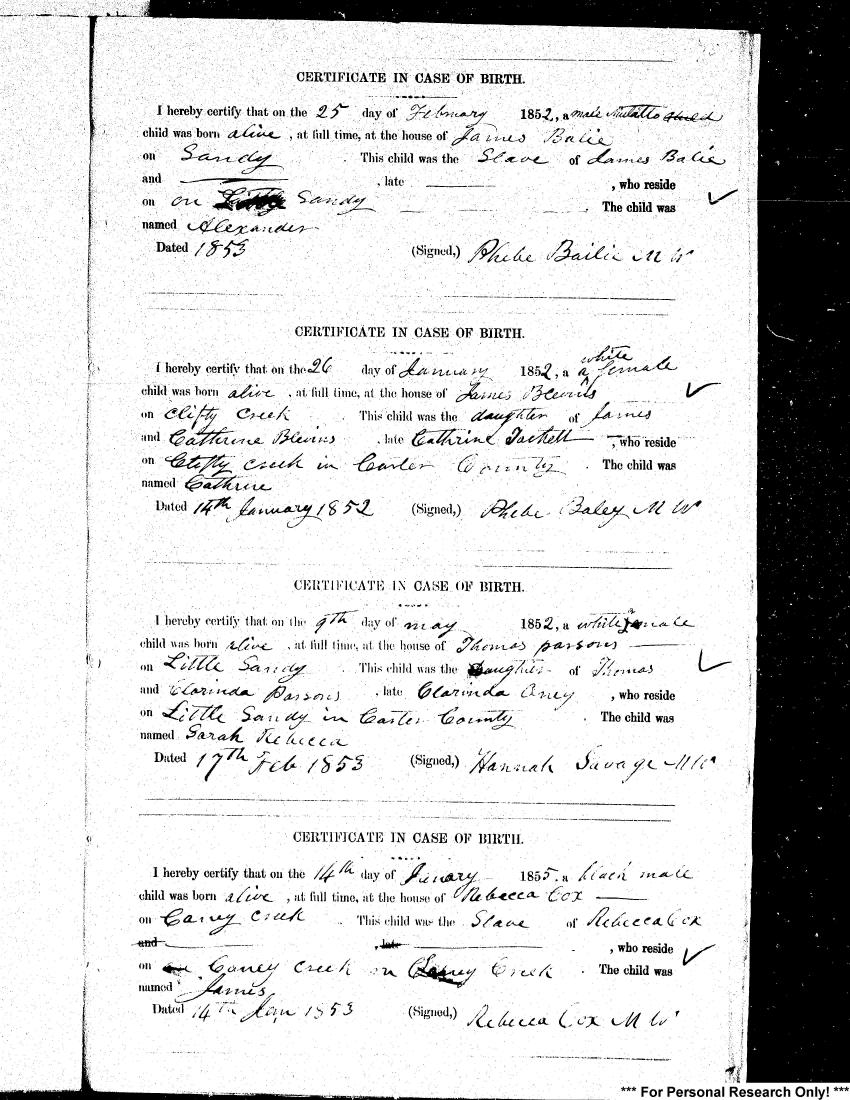 CERTIFICATE IN CASE OF BIRTH.
I hereby certify that on the 25 day of February 1852, a male Mulatto child
child was born alive, at full time, at the house of James Balie
on Sandy . This child was the Slave of James Balie
and , late , who reside
on on Sandy . The child was
named Alexander
Dated 1853 (Signed,) Phebe Bailie M W
CERTIFICATE IN CASE OF BIRTH.
I hereby certify that on the 26 day of January 1852, a a white female
child was born alive, at full time, at the house of James Blevins
on Clifty Creek . This child was the daughter of James
and Cathrine Blevins , late Cathrine Tackett , who reside
on Clifty creek in Carter County . The child was
named Cathrine
Dated 14th January 1852 (Signed,) Phebe Baley M W
CERTIFICATE IN CASE OF BIRTH.
I hereby certify that on the 9th day of may 1852, a white female
child was born alive, at full time, at the house of Thomas parsons
on Little Sandy . This child was the Daughter of Thomas
and Clarinda Parsons , late Clarinda , who reside
on Little Sandy in Carter County . The child was
named Sarah Rebecca
Dated 17th Feb 1853 (Signed,) Hannah Savage M W
CERTIFICATE IN CASE OF BIRTH.
I hereby certify that on the 14th day of Junary 1855, a black male
child was born alive, at full time, at the house of Rebecca Cox
on Caney Creek . This child was the Slave of Rebecca Cox
and , late , who reside
on on Caney Creek on Caney Creek . The child was
named James
Dated 14th Jan 1853 (Signed,) Rebecca Cox M W
*** For Personal Research Only! ***